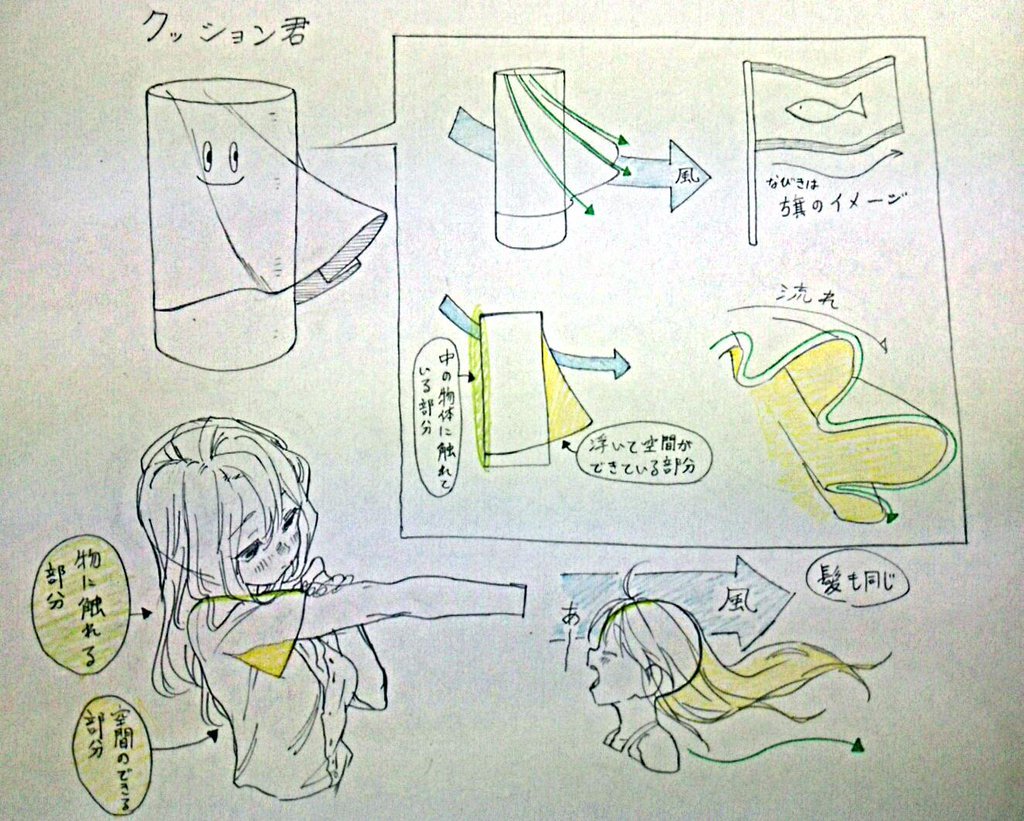 クッション君
風
なびきは
旗のイメージ
流れ
中の物体に触れて
いる部分
浮いて空間が
できている部分
物に触れる
部分
空間のできる
部分
あー
風
髪も同じ